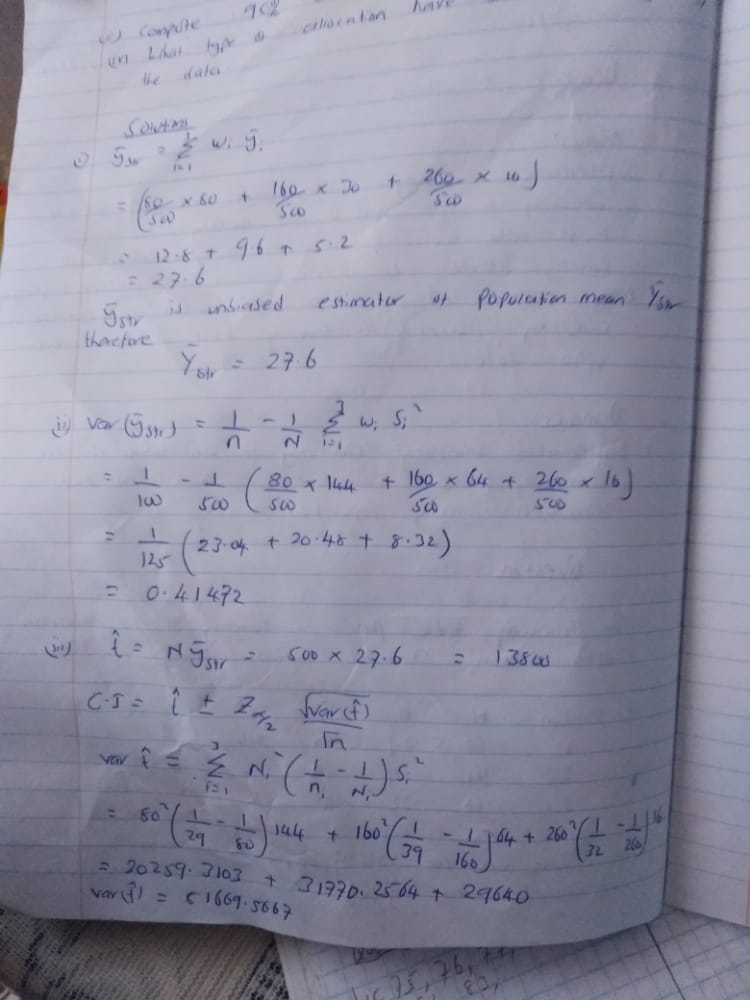 iii) Compute 95%
iv) What type of allocation have
the data
Solution
i) ȳstr = Σ i=1 3 wi ȳi
= (80/500 × 80 + 160/500 × 30 + 260/500 × 10)
= 12.8 + 9 6 + 5.2
= 27.6
ȳstr is unbiased estimator of population mean Ȳstr
therefore
Ȳstr = 27.6
ii) var(ȳstr) = 1/n - 1/N Σ i=1 3 wi Si²
= 1/100 - 1/500 (80/500 × 144 + 160/500 × 64 + 260/500 × 16)
= 1/125 (23.04 + 20.48 + 8.32)
= 0.41472
iii) t̂ = Nȳstr = 500 × 27.6 = 13800
C.I = t̂ ± Zα/2 √var(t̂)/√n
var t̂ = Σ i=1 3 Ni² (1/ni - 1/Ni) Si²
= 80² (1/29 - 1/80) 144 + 160² (1/39 - 1/160) 64 + 260² (1/32 - 1/260) 16
= 20259.3103 + 31770.2564 + 29640
var(t̂) = 81669.5667
75, 76, 77,